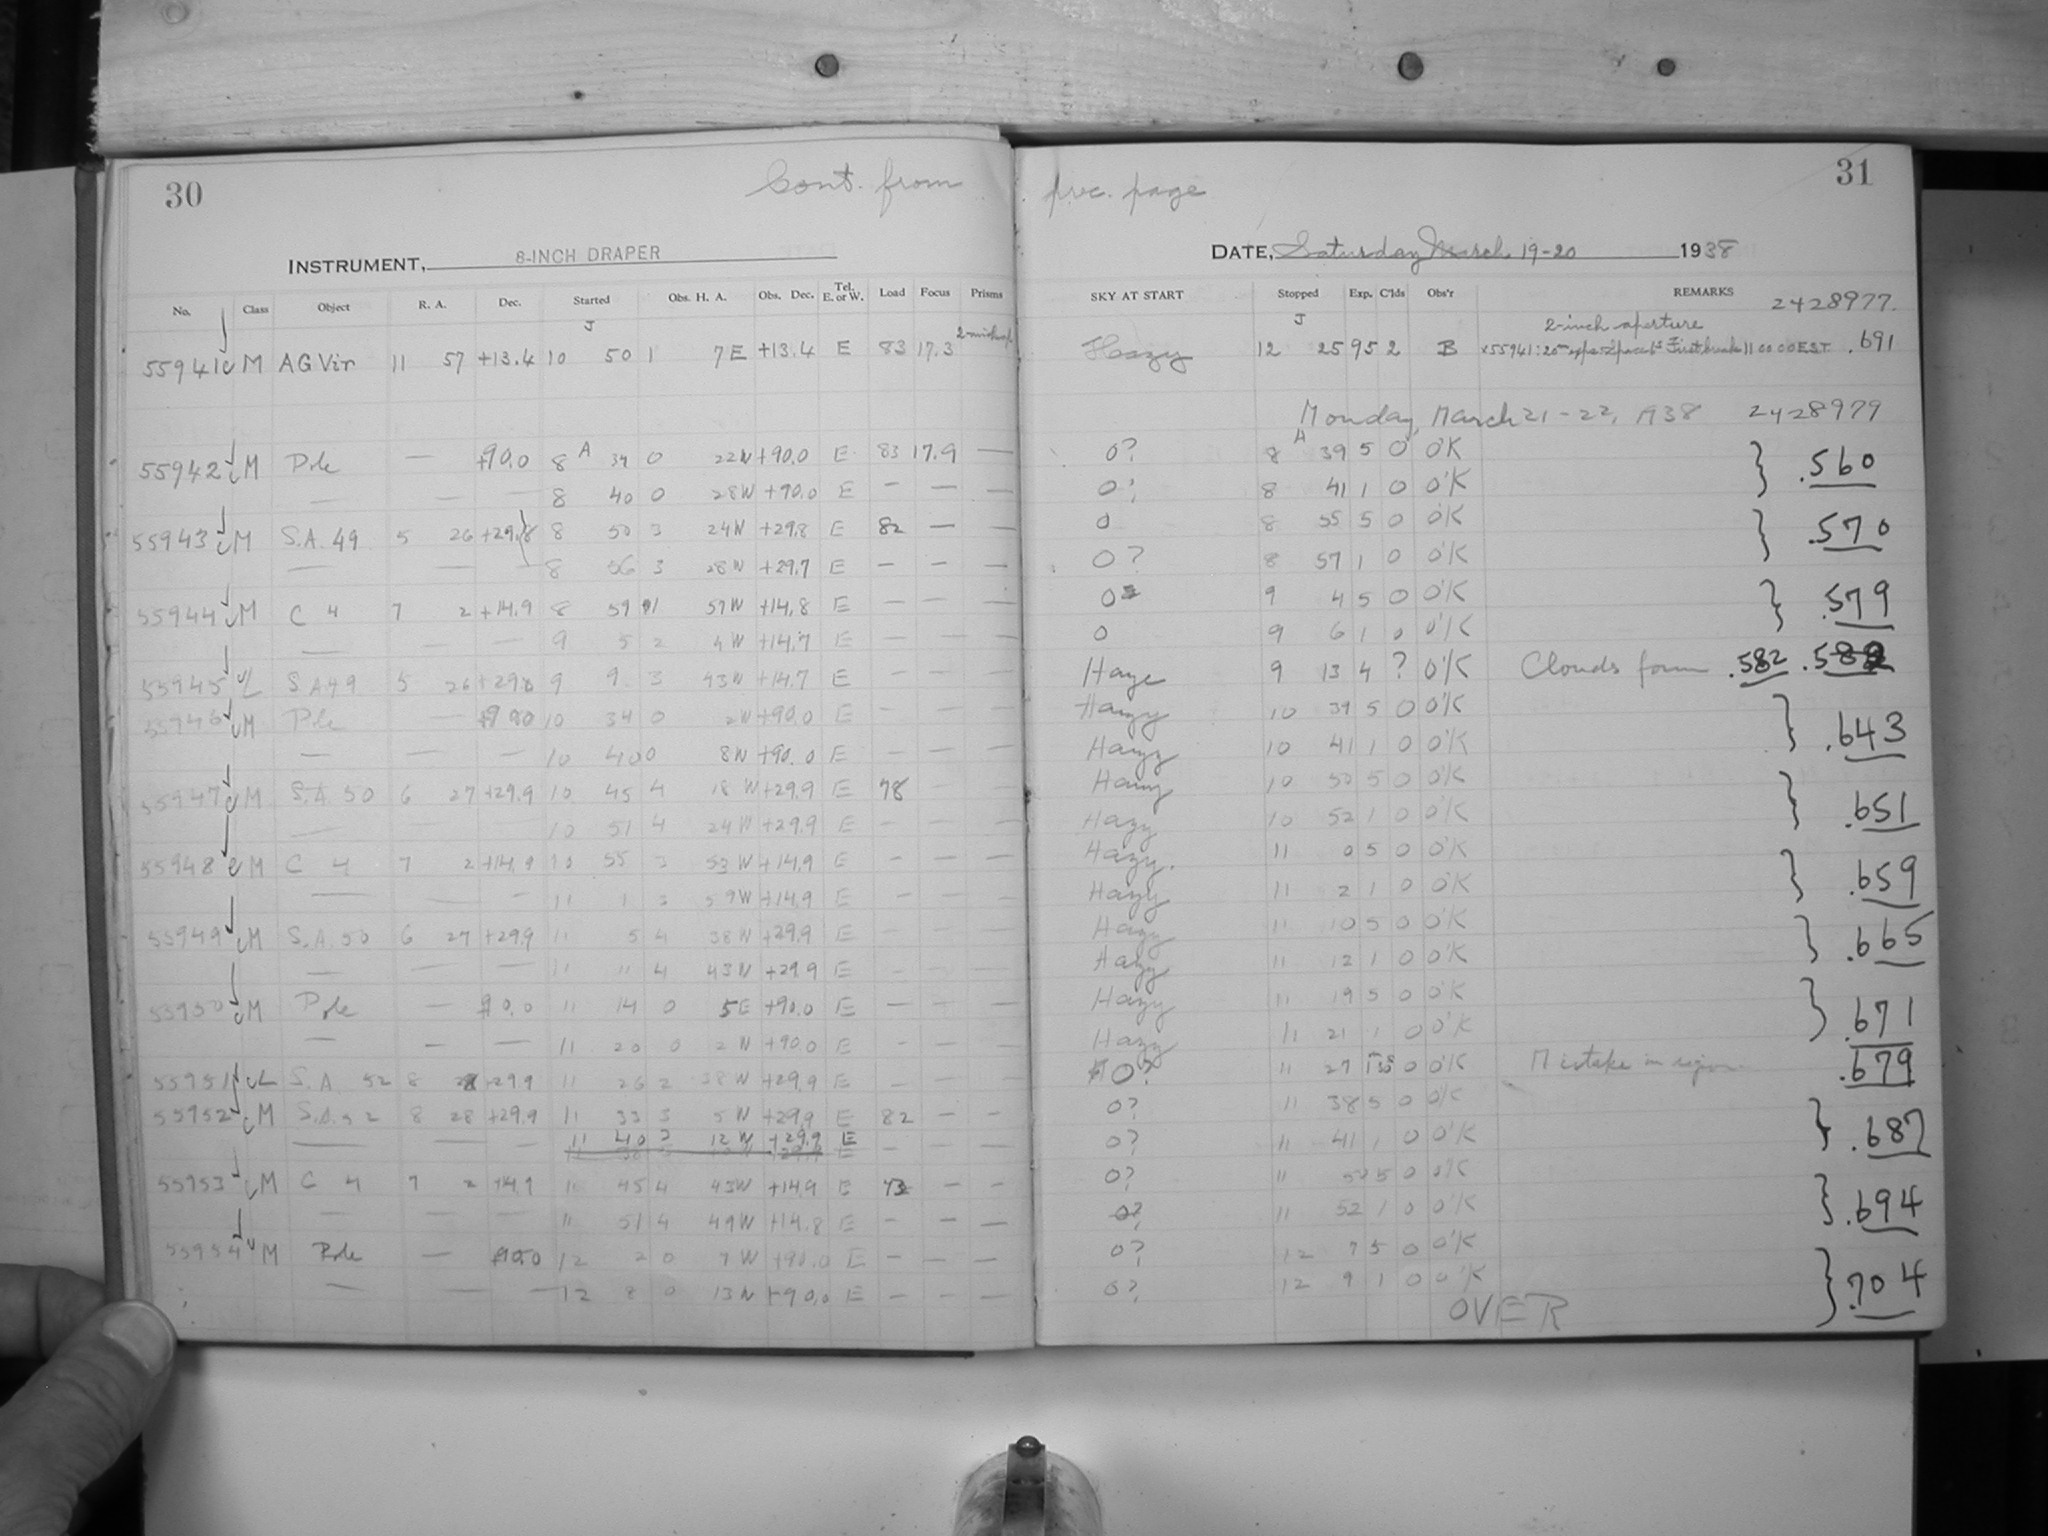 30 Cont. from prev. page 31
INSTRUMENT, 8-INCH DRAPER DATE, Saturday March 19-20 1938
No. Class Object R. A. Dec. Started Obs. H. A. Obs. Dec. Tel. E. or W. Load Focus Prisms SKY AT START Stopped Exp. C'lds Obs'r REMARKS 2428977.
J J 2-inch aperture
55941 M AG Vir 11 57 +13.4 10 50 1 7E +13.4 E 83 17.3 Hazy 12 25 95 2 B .691
Monday, March 21-22, 1938 2428979
55942 M Pole — +90.0 8 A 34 0 22W +90.0 E 83 17.9 — 0? 8 A 39 5 0 O'K } .560
— — — 8 40 0 28W +90.0 E — — — 0? 8 41 1 0 O'K
55943 M S.A. 49 5 26 +29.8 8 50 3 24W +29.8 E 82 — — 0 8 55 5 0 O'K } .570
— — — 8 56 3 28W +29.7 E — — — 0? 8 57 1 0 O'K
55944 M C 4 7 2 +14.9 8 59 1 57W +14.8 E — — — 0 9 4 5 0 O'K } .579
— — 9 5 2 4W +14.7 E — — — 0 9 6 1 0 O'K
55945 L S A 49 5 26 +29.8 9 9 3 43W +14.7 E — — — Haze 9 13 4 ? O'K Clouds form .582
55946 M Pole — +90.0 10 34 0 2W +90.0 E — — — Hazy 10 39 5 0 O'K } .643
— — — 10 40 0 8W +90.0 E — — — Hazy 10 41 1 0 O'K
55947 M S.A 50 6 27 +29.9 10 45 4 18W +29.9 E 78 — — Hazy 10 50 5 0 O'K } .651
— — — 10 51 4 24W +29.9 E — — — Hazy 10 52 1 0 O'K
55948 M C 4 7 2 +14.9 10 55 3 53W +14.9 E — — — Hazy. 11 0 5 0 O'K } .659
— — — 11 1 3 59W +14.9 E — — — Hazy 11 2 1 0 O'K
55949 M S.A. 50 6 27 +29.9 11 5 4 38W +29.9 E — — — Hazy 11 10 5 0 O'K } .665
— — — 11 11 4 43W +29.9 E — — — Hazy 11 12 1 0 O'K
55950 M Pole — 90.0 11 14 0 5E +90.0 E — — — Hazy 11 19 5 0 O'K } .671
— — — 11 20 0 2W +90.0 E — — — Hazy 11 21 1 0 O'K
55951 L S.A. 52 8 28 +29.9 11 26 2 38W +29.9 E — — — 0? 11 27 0 O'K Mistake in region .679
55952 M S.A. 52 8 28 +29.9 11 33 3 5W +29.9 E 82 — — 0? 11 38 5 0 O'K } .687
— — — 11 40 3 12W +29.9 E — — — 0? 11 41 1 0 O'K
55953 M C 4 7 2 +14.9 11 45 4 43W +14.9 E — — 0? 11 50 5 0 O'K } .694
— — — 11 51 4 49W +14.8 E — — — 0? 11 52 1 0 O'K
55954 M Pole — +90.0 12 2 0 7W +90.0 E — — — 0? 12 7 5 0 O'K } .704
— — — 12 8 0 13W +90.0 E — — — 0? 12 9 1 0 O'K
OVER